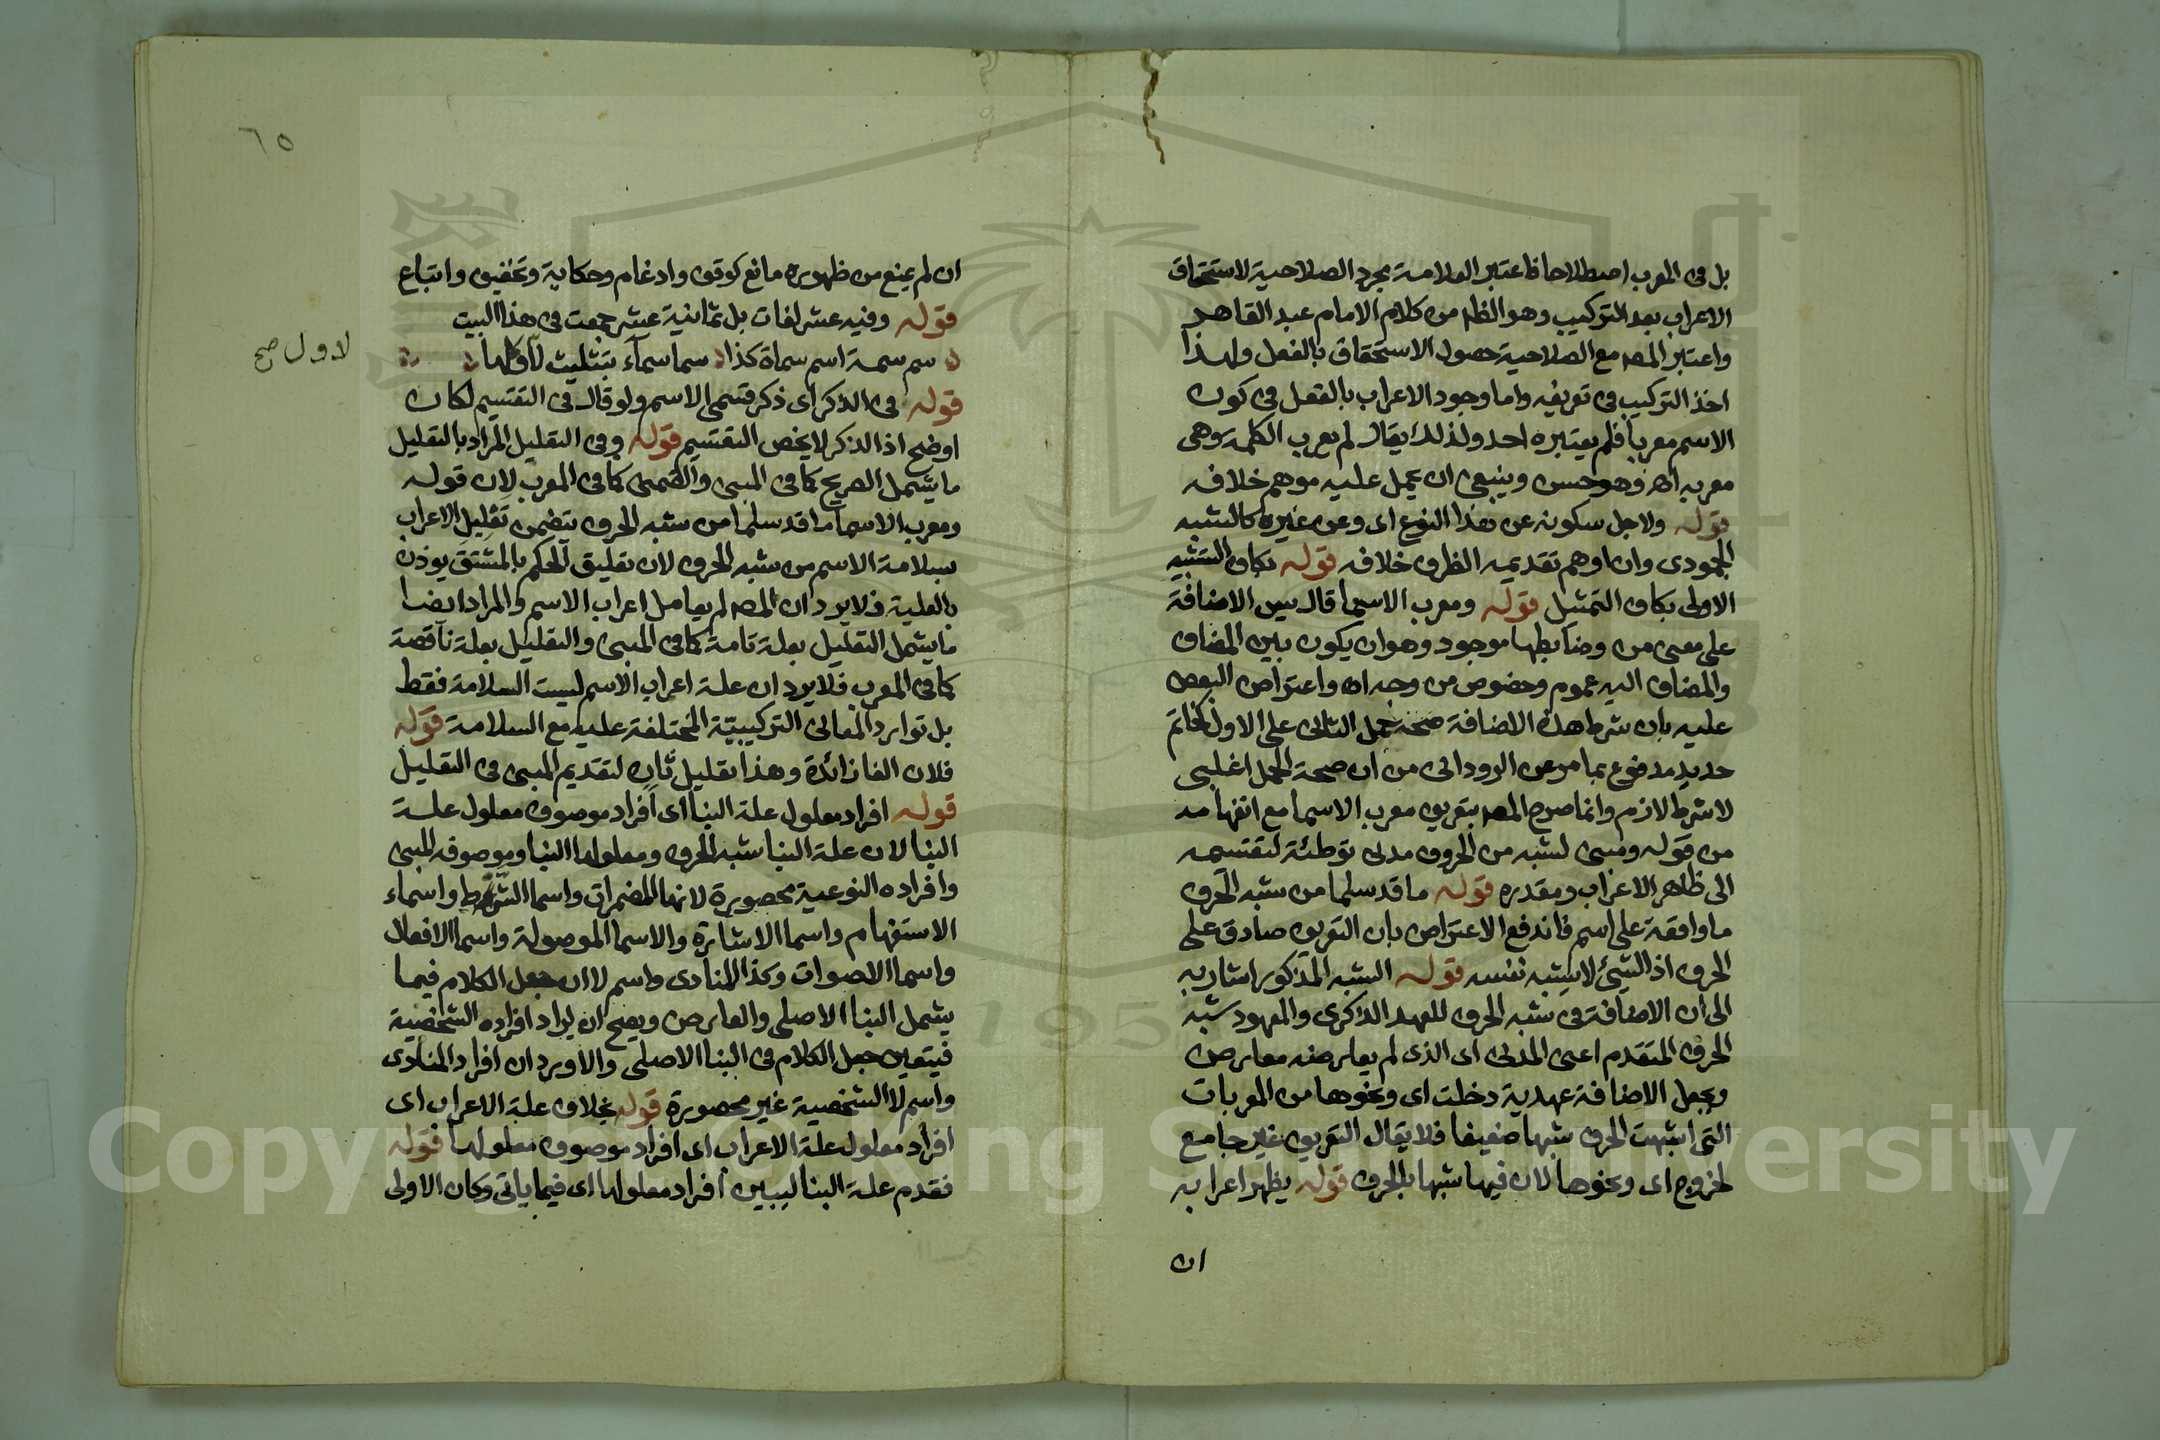 بل فى المعرب اصطلاحا فاعتبر العلامة مجرد الصلاحية لاستحقاق
الاعراب بعد التركيب وهو الظ من كلام الامام عبد القاهر
واعتبر المصـ مع الصلاحية حصول الاستحقاق بالفعل ولهذا
اخذ التركيب فى تعريفه واما وجود الاعراب بالفعل فى كون
الاسم معربا فلم يعتبره احد ولذلك يقال لم يعرب الكلمة وهى
معربه اهـ وهو حسن وينبغى ان يحمل عليه موهم خلافه
قوله ولاجل سكونه عن هذا النوع اى وعن غيره كالشبه
الجمودى وان اوهم تقديمه الظرف خلافه قوله بكاف التشبيه
الاولى بكاف التمثيل قوله ومعرب الاسما قال يس الاضافة
على معنى من وضابطها موجود وهو ان يكون بين المضاف
والمضاف اليه عموم وخصوص من وجه اه واعتراض البعض
عليه بان شرط هذه الاضافة صحة حمل الثانى على الاول كخاتم
حديد مدفوع بما مر عن الرودانى من ان صحة الحمل اغلبى
لا شرط لازم وانما صرح المصـ بتعريف معرب الاسما مع انفهامه
من قوله ومبنى لشبه من الحروف مدنى توطئة لتقسيمه
الى ظاهر الاعراب ومقدره قوله ما قد سلما من شبه الحرف
ما واقعة على اسم فاندفع الاعتراض بان التعريف صادق على
الحرف اذ الشيئ لا يشبه نفسه قوله الشبه المذكور اشار به
الى ان الاضافة فى شبه الحرف للعهد الذكرى والمعهود شبه
الحرف المتقدم اعنى المدنى اى الذى لم يعارضه معارض
وبجعل الاضافة عهدية دخلت اى ونحوها من المعربات
التى اشبهت الحرف شبها ضعيفا فلا يقال التعريف غير جامع
لخروج اى ونحوها لان فيها شبها بالحرف قوله يظهر اعرابه
ان
٦٥
ان لم يمنع من ظهوره مانع كوقف وادغام وحكاية وتخفيف واتباع
قوله وفيه عشر لغات بل ثمانية عشر جمعت فى هذا البيت
سم سمة اسم سماة كذا سما سماء بتثليث لاول كلها
لاول صح
قوله فى الذكر اى ذكر قسمى الاسم ولو قال فى التقسيم لكان
اوضح اذ الذكر لا يخص التقسيم قوله وفى التعليل المراد بالتعليل
ما يشمل الصريح كما فى المبنى والضمنى كما فى المعرب لان قوله
ومعرب الاسما ما قد سلما من شبه الحرف يتضمن تعليل الاعراب
بسلامة الاسم من شبه الحرف لان تعليق الحكم بالمشتق يوذن
بالعلية فلا يرد ان المصـ لم يعامل اعراب الاسم والمراد ايضا
ما يشمل التعليل بعلة تامة كما فى المبنى والتعليل بعلة ناقصة
كما فى المعرب فلا يرد ان علة اعراب الاسم ليست السلامة فقط
بل توارد المعانى التركيبية المختلفة عليه مع السلامة قوله
فلان الفا زائدة وهذا تعليل ثان لتقديم المبنى فى التعليل
قوله افراد معلول علة البنا اى افراد موصوف معلول علة
البنا لان علة البنا شبه الحرف ومعلولها البنا وموصوفه المبنى
وافراده النوعية محصورة لانها المضمرات واسما الشرط واسماء
الاستفهام واسما الاشارة والاسما الموصولة واسما الافعال
واسما الاصوات وكذا المنادى واسم لا ان جعل الكلام فيما
يشمل البنا الاصلى والعارض ويصح ان يراد افراده الشخصية
فيتعين جعل الكلام فى البنا الاصلى والا ويرد ان افراد المنادى
واسم لا الشخصية غير محصورة قوله بخلاف علة الاعراب اى
افراد معلول علة الاعراب اى افراد موصوف معلولها قوله
فقدم علة البنا ليبين افراد معلولها اى فيما ياتى وكان الاولى
Copyright © King Saud University